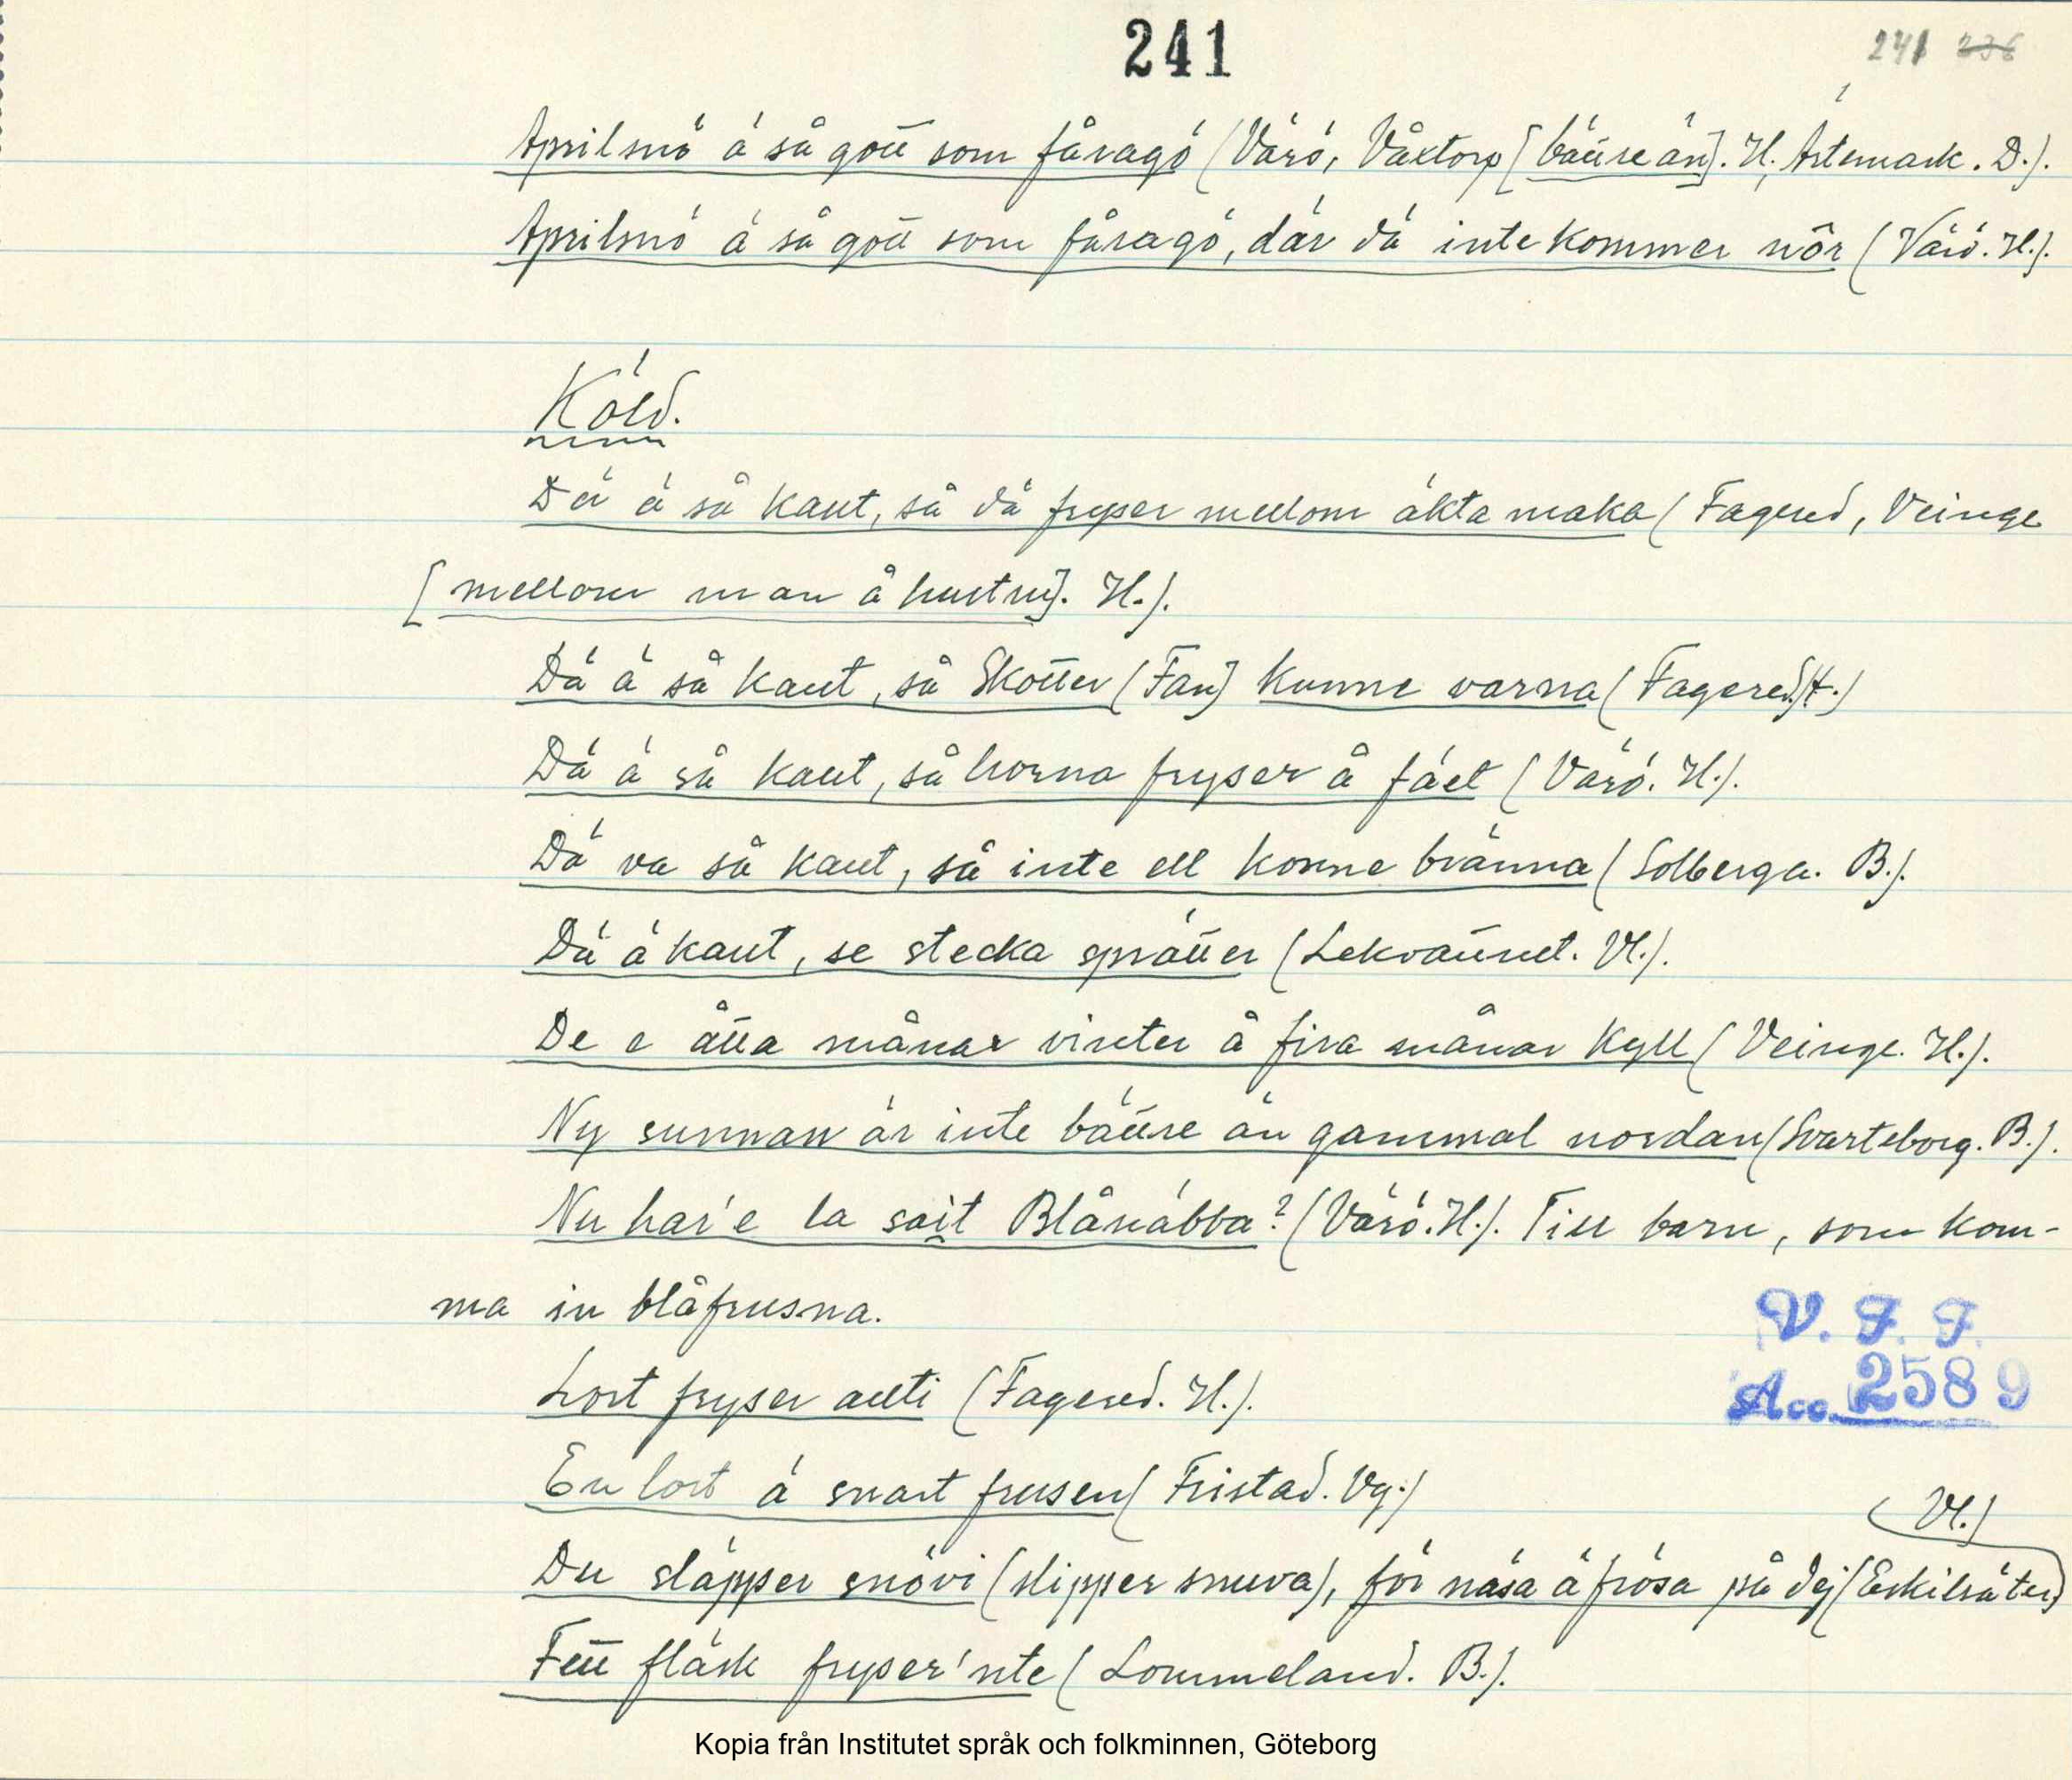 241
241 236
Aprilsnö ä så gott som fåragö (Värö, Våxtorp [bättre än]. H., Ärtemark. D.).
Aprilsnö ä så gott som fåragö, där dä inte kommer nôr (Värö. H.).
Köld.
Dä ä så kallt, så dä fryser mellom äkta maka (Fagered, Veinge
[mellom man å hustru]. H.).
Dä ä så kallt, så Skotten (Fan) kunne varna (Fagered. H.)
Dä ä så kallt, så horna fryser å fäet (Värö. H.).
Dä va så kallt, så inte ell konne bränna (Solberga. B.).
Dä ä kallt, se stecka sprätter (Lekvattnet. Vl.).
De e åtta månar vinter å fira månar kyll (Veinge. H.).
Ny sunnan är inte bättre än gammal nordan (Svarteborg. B.).
Nu har'e la sait Blånäbba? (Värö. H.). Till barn, som kom-
ma in blåfrusna.
Lort fryser allti (Fagered. H.).
En lort ä snart frusen (Fristad. Vg.)
Du släpper snövi (slipper snuva), för näsa ä frösa på dej (Eskilsäter.
Vl.)
Fett fläsk fryser'nte (Lommeland. B.).
V. F. F.
Acc. 2589
Kopia från Institutet språk och folkminnen, Göteborg